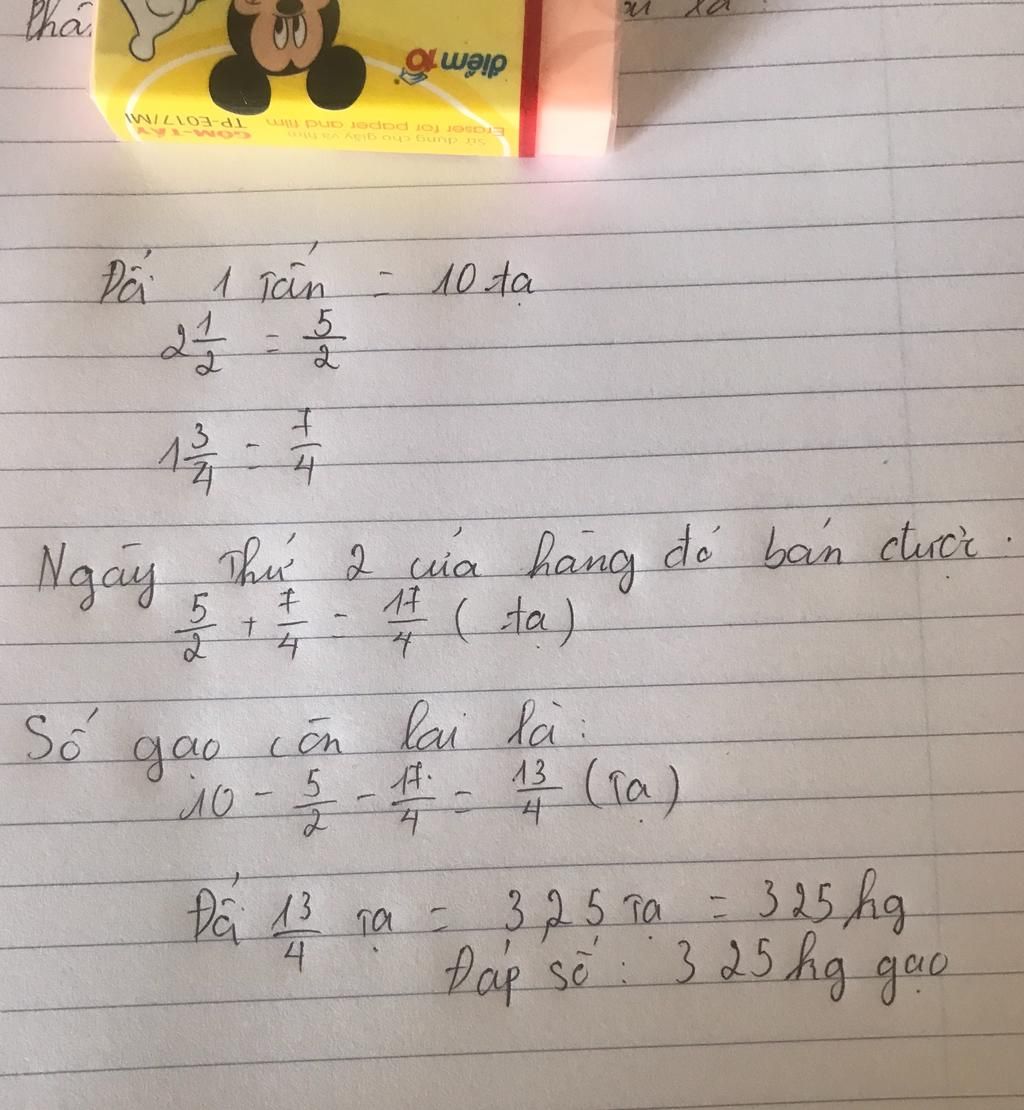 Phâ
điểm 10
TP-E017/MI
GÔM-TẨY
Eraser for paper and film
Sử dụng cho giấy và film
Đổi 1 tấn = 10 tạ
2 1/2 = 5/2
1 3/4 = 7/4
Ngày thứ 2 cửa hàng đó bán được:
5/2 + 7/4 = 17/4 (tạ)
Số gạo còn lại là:
10 - 5/2 - 17/4 = 13/4 (tạ)
Đổi 13/4 tạ = 3,25 tạ = 325 kg
Đáp số: 325 kg gạo